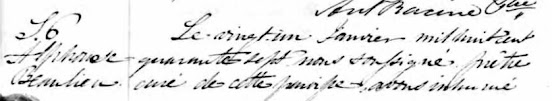 Ant Racine Ptre
S. 6 Le vingt un Janvier mil huit cent
Alphonse quarante sept nous soussigné prêtre
Beaulieu curé de cette paroisse avons inhumé